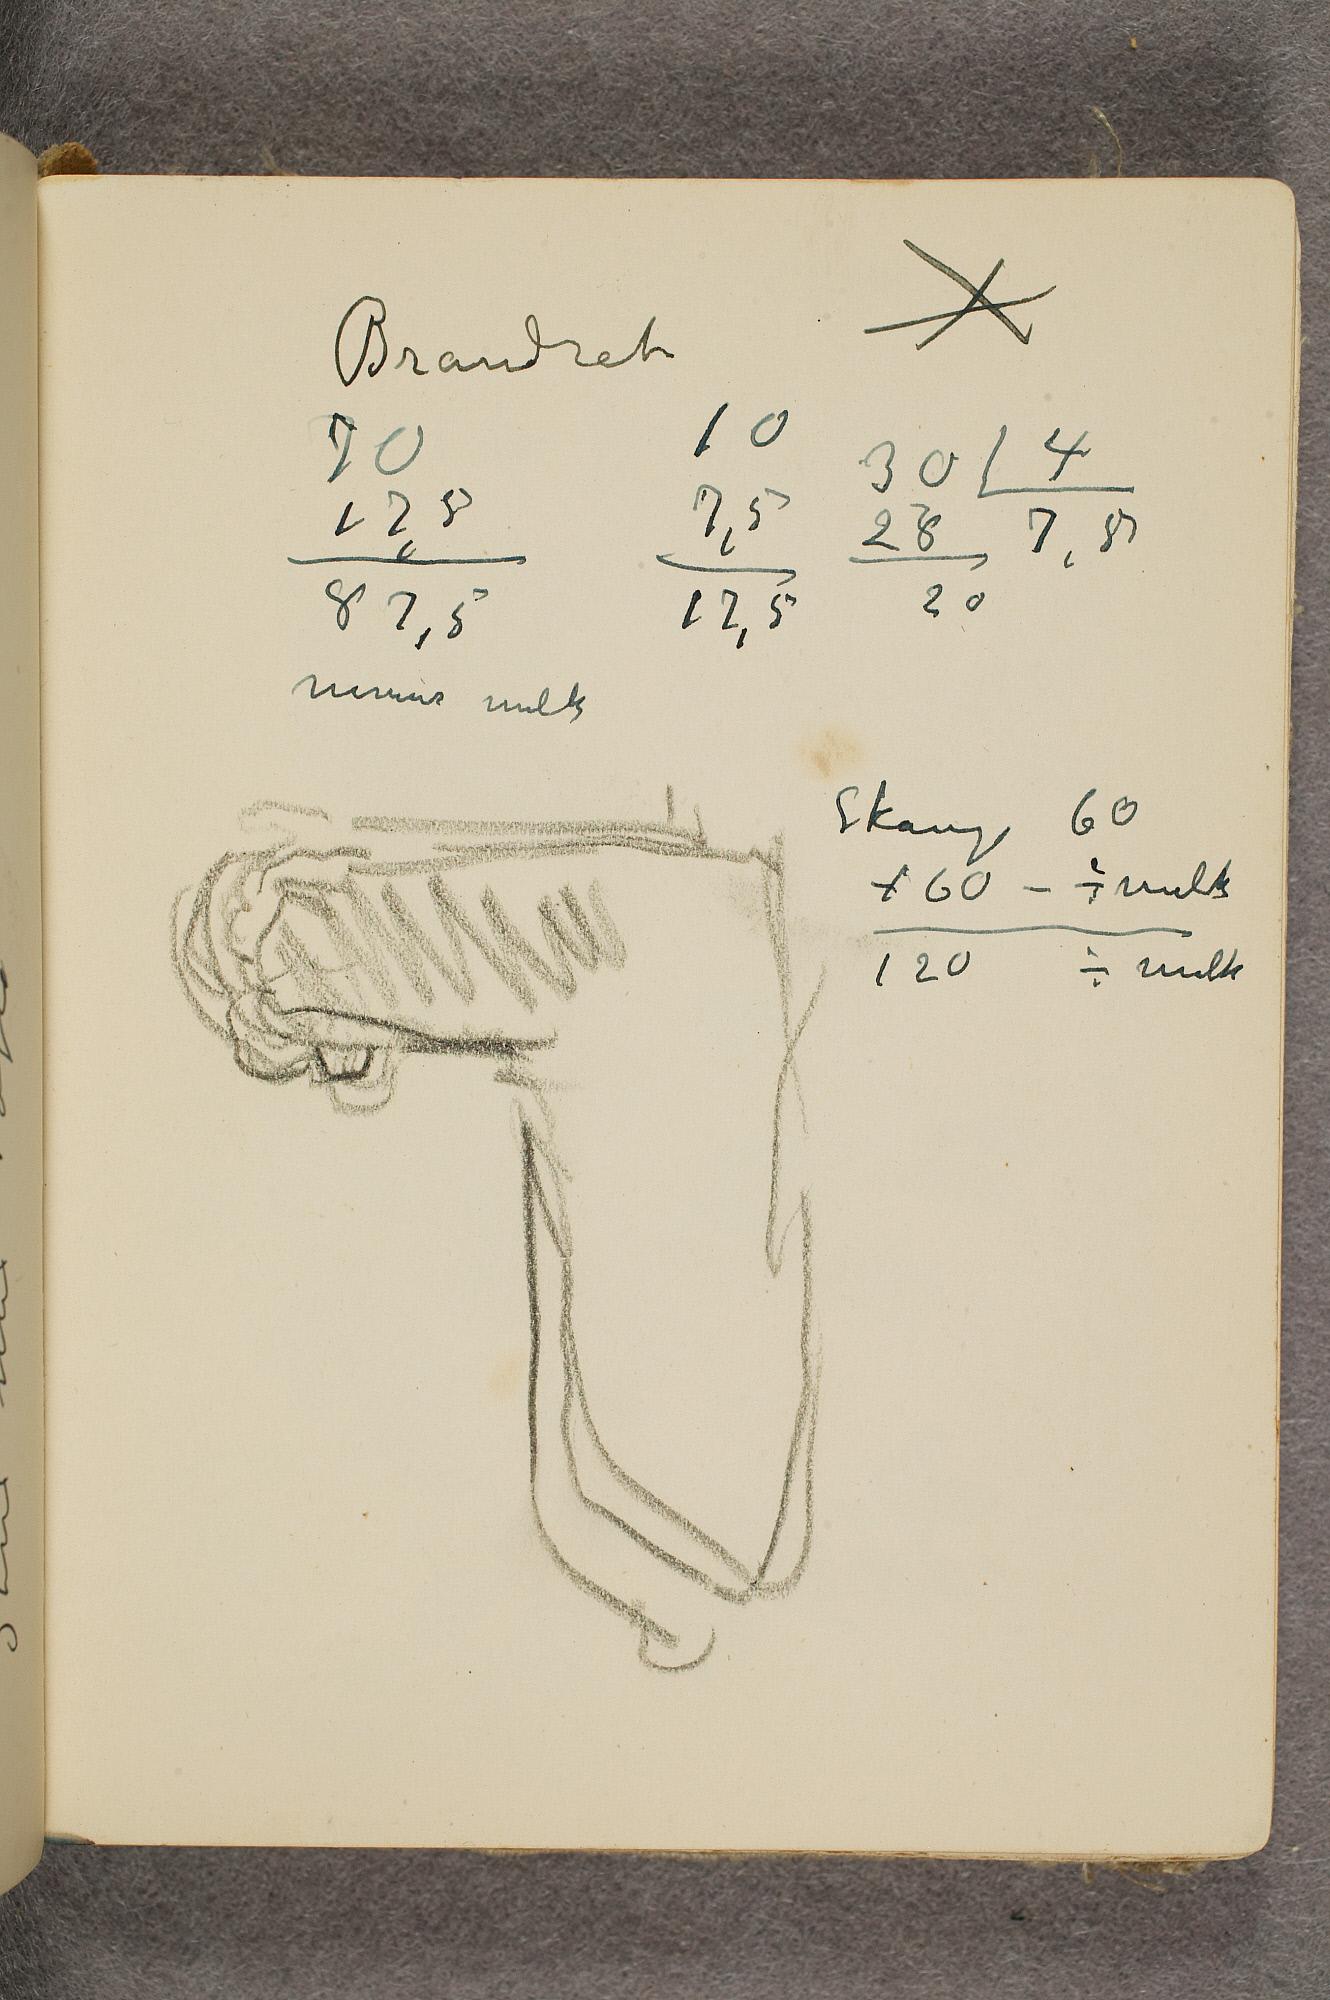 Brandret
70
17,5
87,5
minus milk
10
7,5
17,5
30 4
28 7,5
20
Skaug 60
+ 60 - ÷ milk
120 ÷ milk